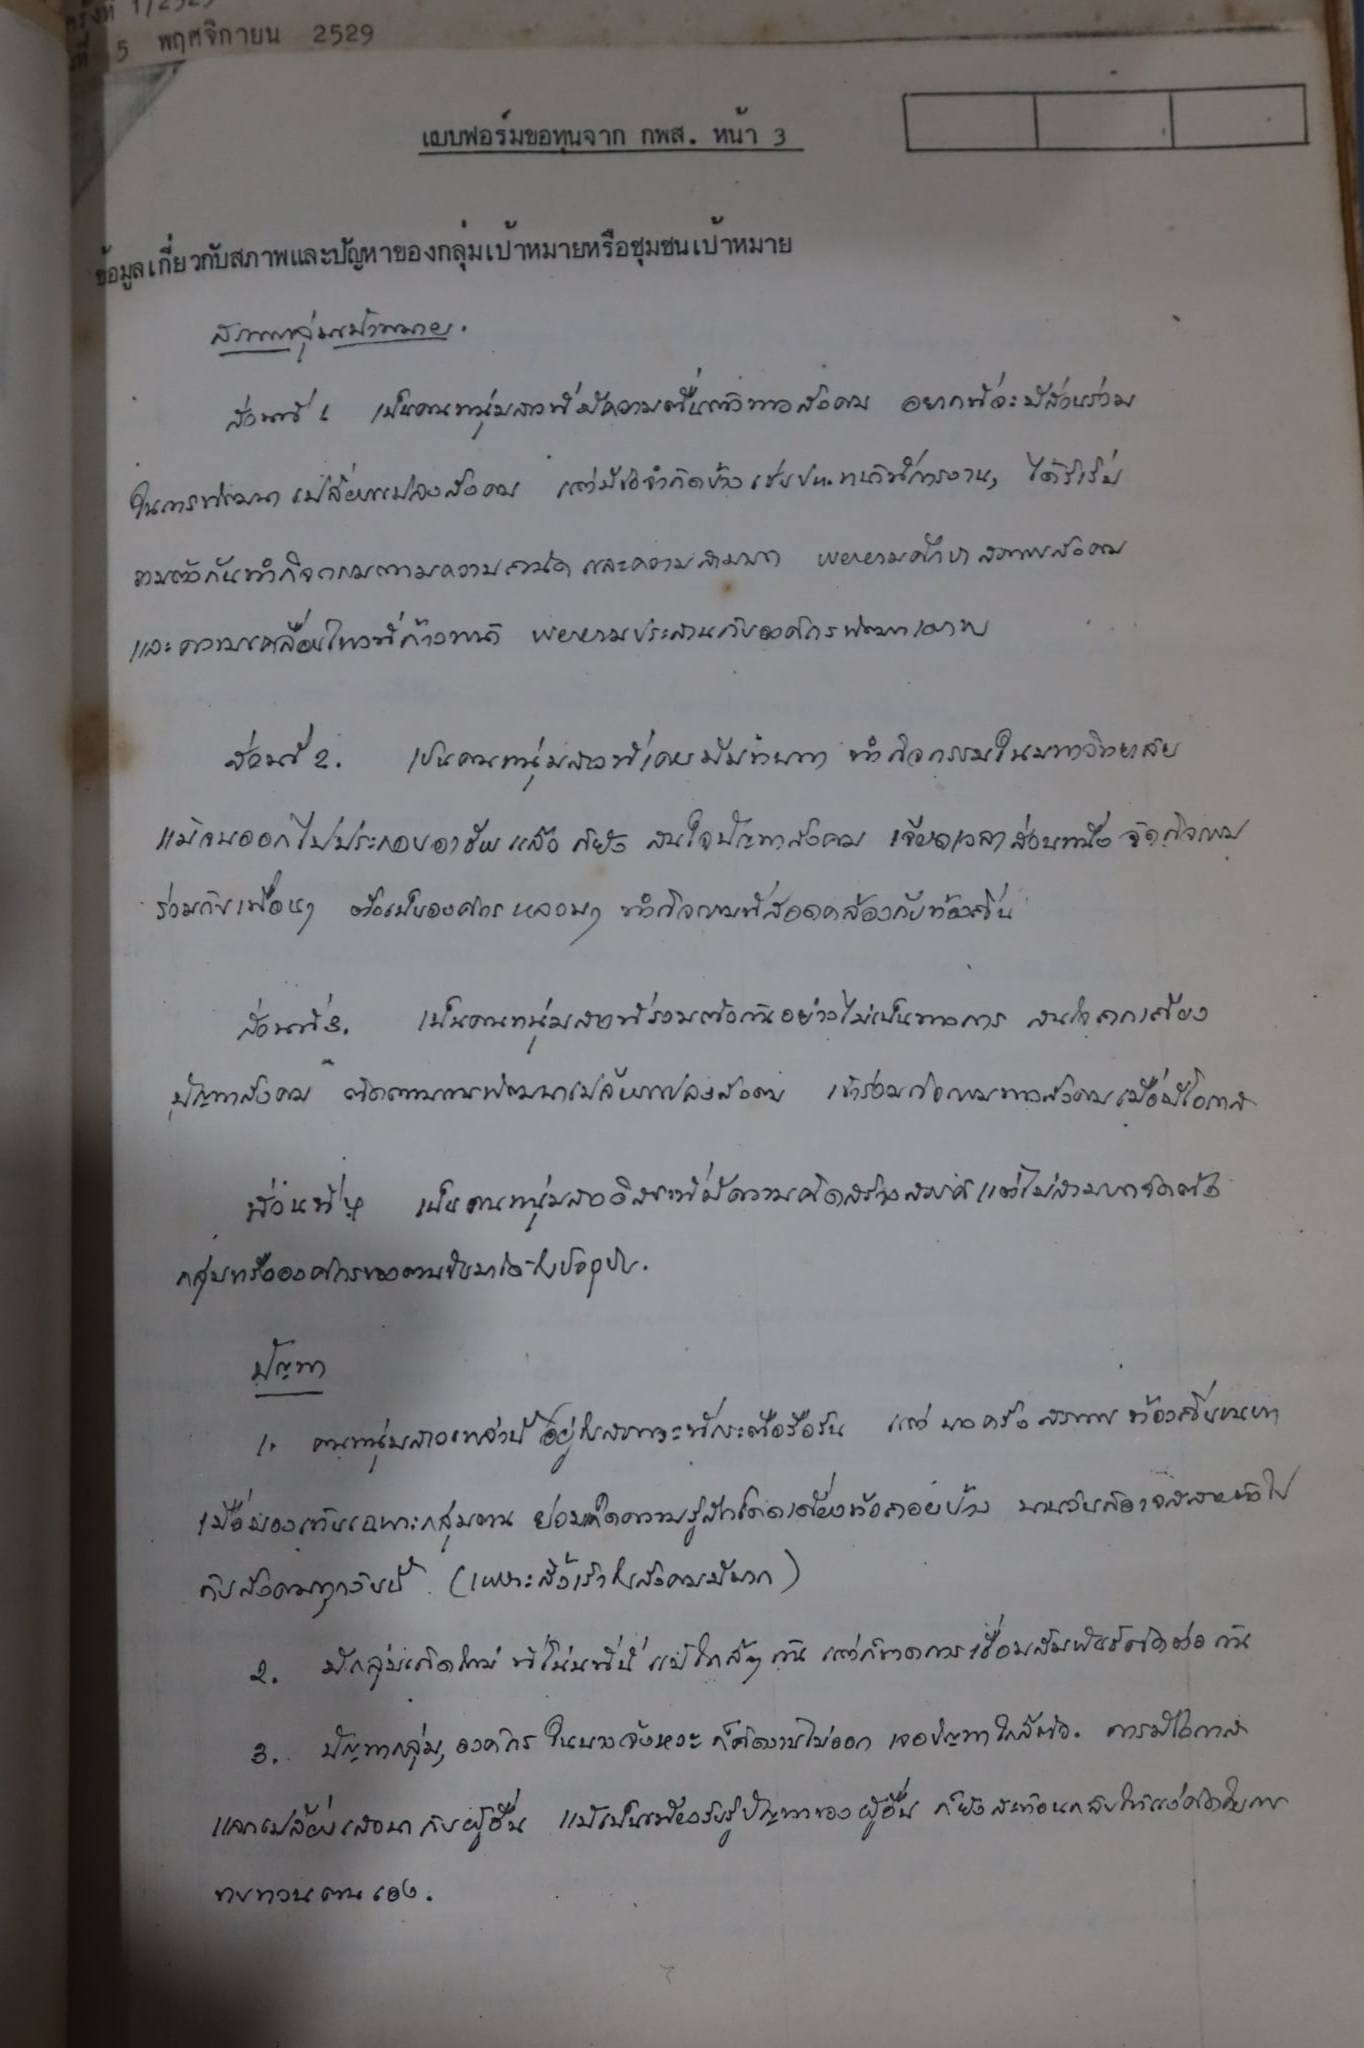 ครั้งที่ 1/2529
ที่ 5 พฤศจิกายน 2529
แบบฟอร์มขอทุนจาก กพส. หน้า 3
ข้อมูลเกี่ยวกับสภาพและปัญหาของกลุ่มเป้าหมายหรือชุมชนเป้าหมาย
สภาพกลุ่มเป้าหมาย.
ส่วนที่ 1 เป็นคนหนุ่มสาวที่มีความตื่นตัวทางสังคม อยากที่จะมีส่วนร่วม
ในการพัฒนาเปลี่ยนแปลงสังคม แต่มีข้อจำกัดบ้าง หน้าที่การงาน, ได้ริเริ่ม
รวมตัวกันทำกิจกรรมตามความถนัด และความสามารถ พยายามศึกษาสภาพสังคม
และความเคลื่อนไหวที่ก้าวหน้า พยายามประสานกับองค์กรพัฒนา
ส่วนที่ 2. เป็นคนหนุ่มสาวที่เคย ทำกิจกรรมในมหาวิทยาลัย
แม้จบออกไปประกอบอาชีพแล้ว ก็ยัง สนใจปัญหาสังคม เจียดเวลาส่วนหนึ่ง จัดกิจกรรม
ร่วมกับเพื่อนๆ ตั้งเป็นองค์กรหลวมๆ ทำกิจกรรมที่สอดคล้องกับท้องถิ่น
ส่วนที่ 3. เป็นคนหนุ่มสาวที่รวมตัวกันอย่างไม่เป็นทางการ สนใจถกเถียง
ปัญหาสังคม ติดตามการพัฒนาเปลี่ยนแปลงสังคม เข้าร่วมกิจกรรมทางสังคมเมื่อมีโอกาส
ส่วนที่ 4 เป็นคนหนุ่มสาวอิสระที่มีความคิดสร้างสรรค์ แต่ไม่สามารถจัดตั้ง
กลุ่มหรือองค์กรของตนขึ้นมาได้ในปัจจุบัน.
ปัญหา
1. คนหนุ่มสาวเหล่านี้ อยู่ในสภาวะที่กระตือรือร้น แต่ บางครั้ง สภาพ ท้องถิ่น
เมื่อมองเห็นเฉพาะกลุ่มตน ย่อมเกิดความรู้สึกโดดเดี่ยวท้อถอยบ้าง นานวันก็อาจสลายตัวไป
กับสังคมทุกวันนี้ (เพราะสิ่งเร้าในสังคมมีมาก)
2. มีกลุ่มเกิดใหม่ ที่โน่นที่นี่ แม้ใกล้ๆ กัน แต่ก็ขาดการเชื่อมสัมพันธ์ต่อ กัน
3. ปัญหากลุ่ม, องค์กร ในบางจังหวะ ก็คิดงานไม่ออก เจอปัญหาใกล้ตัว. การมีโอกาส
แลกเปลี่ยนเสวนา กับผู้อื่น แม้เป็นเพียงรับรู้ปัญหาของ ผู้อื่น ก็ยังสะท้อนกลับให้แง่คิดในการ
ทบทวนตนเอง.